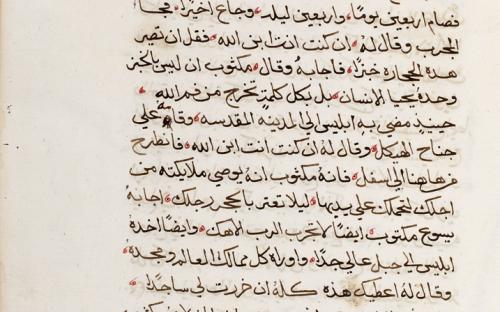 فصام اربعين يومًا واربعين ليله وجاع اخيرًا فجا
المجرب وقال له ان كنت انت ابن الله فقل ان تصير
هذه الحجاره خبزًا فاجابه وقال مكتوب ان ليس بالخبز
وحده يحيا الانسان بل بكل كلمة تخرج من فم الله
حينيذ مضي به ابليس الي المدينه المقدسه وقامه علي
جناح الهيكل وقال له ان كنت انت ابن الله فانطرح
من هاهنا الي اسفل فانه مكتوب انه يوصي ملايكته من
اجلك لتحملك علي يديها ليلا تعتر بالحجر رجلك اجابه
يسوع مكتوب ايضًا لا تجرب الرب الاهك وايضًا اخده
ابليس الي جبل عالي جدًا واوراه كل ممالك العالم ومجده
وقال له اعطيك هذه كلها ان خررت لي ساجدًا